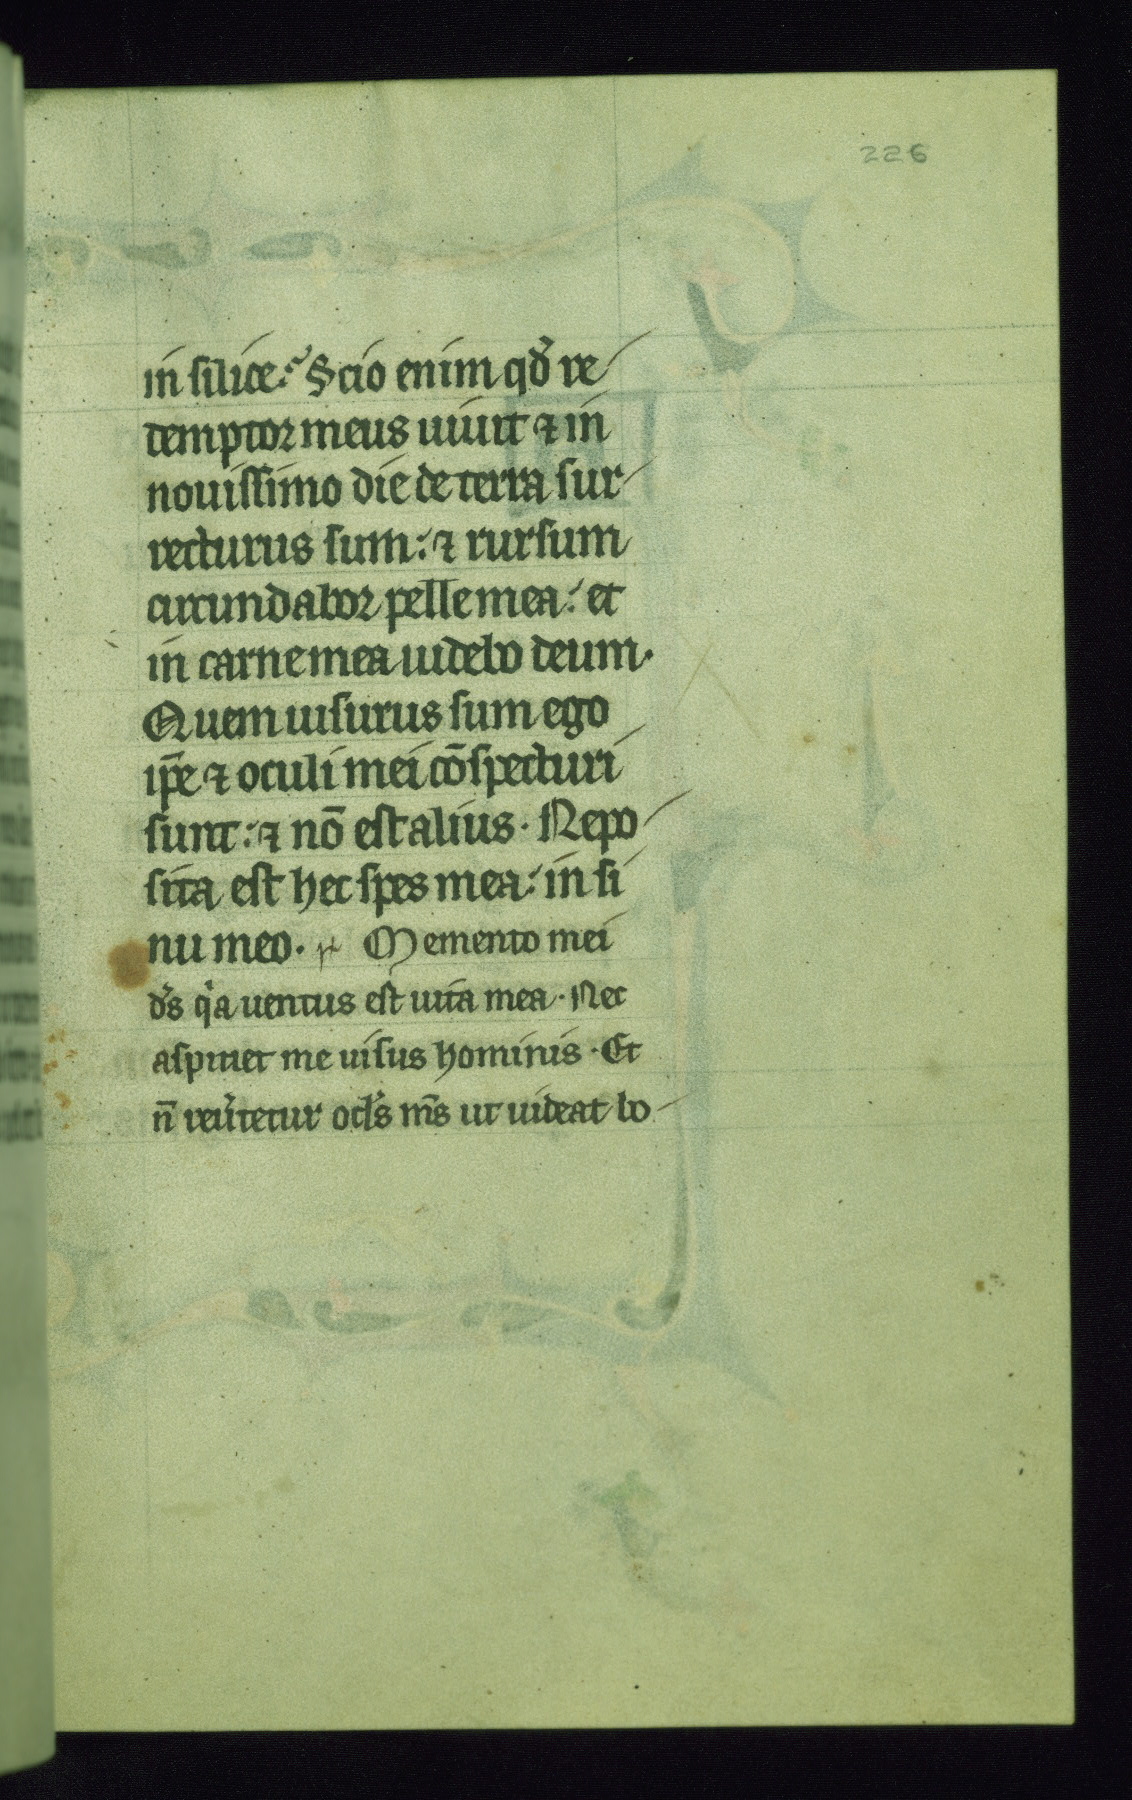 226
in silice: Scio enim qd̾ re
temptor meus uiuit ⁊ in
nouissimo die de terra sur
recturus sum: ⁊ rursum
circundabor pelle mea: et
in carne mea uidebo deum.
Quem uisurus sum ego
ip̄e ⁊ oculi mei cōspecturi
sunt: ⁊ nō est alius. Repo
sita est hec spes mea: in si
nu meo. Memento mei
d̾s qͥa uentus est uita mea. Nec
aspiciet me uisus hominis. Et
n̄ reu̾tetur ocl̾s m̄s ut uideat bo